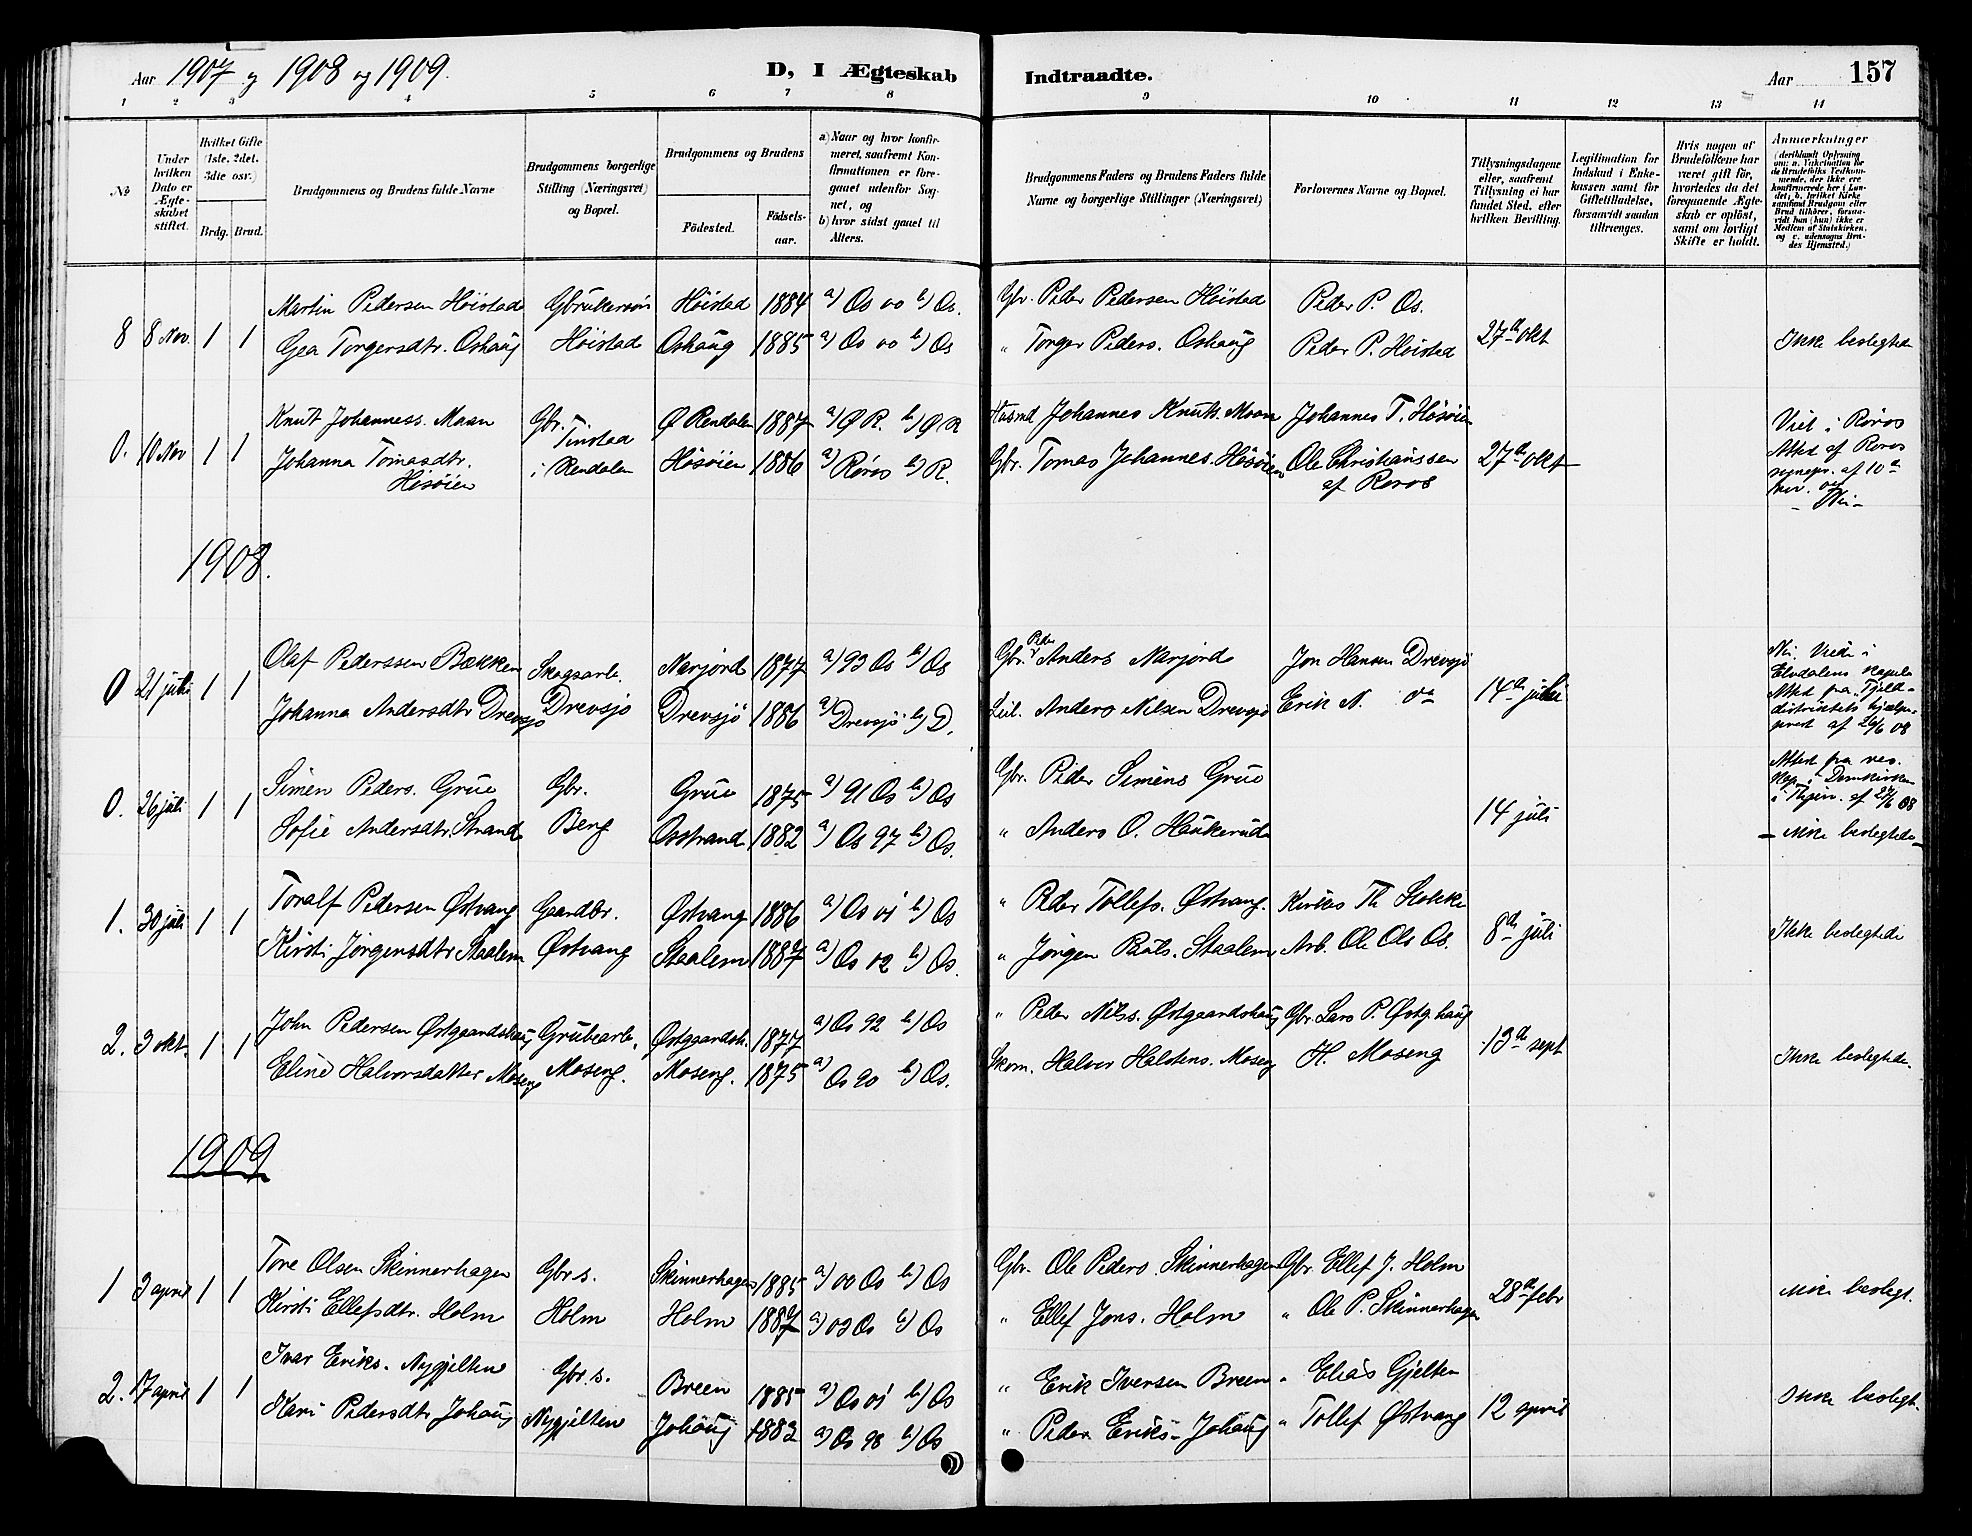 Aar 1907 og 1908 og 1909.
D, I Ægteskab Indtraadte.
Aar 157
1 2 3 4 5 6 7 8 9 10 11 12 13 14
No
Under hvilken Dato er Ægteskabet stiftet.
Hvilket Gifte (1ste, 2det, 3die osv.)
Brdg. Brud.
Brudgommens og Brudens fulde Navne
Brudgommens borgerlige Stilling (Næringsvei) og Bopæl.
Brudgommens og Brudens
Födested. Födsels-aar.
a) Naar og hvor konfirmeret, saafremt Konfirmationen er foregaaet udenfor Sognet, og
b) hvor sidst gaaet til Alters.
Brudgommens Faders og Brudens Faders fulde Navne og borgerlige Stillinger (Næringsvei)
Forlovernes Navne og Bopæl.
Tillysningsdagene eller, saafremt Tillysning ei har fundet Sted, efter hvilken Bevilling.
Legitimation for Indskud i Enkekassen samt for Giftetilladelse, forsaavidt saadan tiltrænges.
Hvis nogen af Brudefolkene har været gift för, hvorledes da det foregaaende Ægteskab er oplöst, samt om lovligt Skifte er holdt.
Anmærkninger
(deriblandt Oplysning om: a. Vakcination for de Brudefolks Vedkommende, der ikke ere konfirmerede her i Landet; b. hvilket Kirkesamfund Brudgom eller Brud tilhörer, forsaavidt han (hun) ikke er Medlem af Statskirken, og c. udensogns Brudes Hjemsted.)
8 8 Nov. 1 1 Martin Pedersen Höistad Höistad 1884 a) Os 00 b) Os. Gbr. Peder Pedersen Höistad Peder P. Os.
Gea Torgersdtr. Oshaug Höistad Oshaug 1885 a) Os 00 b) Os " Torger Peders. Oshaug Peder P. Höistad 27de okt Ikke beslegtede
0. 10 Nov 1 1 Knut Johanness. Maan Gbr. Tinstad Ø Rendalen 1887 a) Ø R. b) Ø R Husmd Johannes Knuts. Maan Johannes T. Hösöien Viet i Röros
Johanna Tomasdtr. Hösöien i Rendalen Hösöien 1886 a) Röros b) R. Gbr. Tomas Johannes. Hösöien Ole Christianssen af Röros 27de okt Attest af Röros
1908.
0 21 juli 1 1 Olaf Pederssen Bækken Skogsarb. Narjord 1877 a) 93 Os b) Os Gbr. Peder Anders Narjord Jon Hansen Drevsjö
Johanna Andersdtr Drevsjö Drevsjö Drevsjö 1886 a) Drevsjö b) D. Anders Nilsen Drevsjö Erik N. do 14de juli
0. 26 juli 1 1 Simen Peders. Grue Gbr. Grue 1875 a) 91 Os b) Os Gbr. Peder Simens Grue
Sofie Andersdtr. Strand Berg Osstrand 1882 a) Os 97 b) Os. " Anders O. Haukerud 14 juli Ikke beslegtede
1. 30 juli 1 1 Toralf Pedersen Østvang Gaardbr. Østvang 1886 a) Os 01 b) Os " Peder Tollefs. Østvang. Th Stokke
Kirsti Jörgensdtr Staalem Østvang Staalem 1887 a) Os 02 b) Os. " Jörgen Staalem Arb. Ole Ols Os. 8de juli Ikke beslegtede
2. 3 okt. 1 1 John Pedersen Østgaardshaug Grubearb. Østgaardsh. 1877 a) Os 92 b) Os " Peder Nilss. Østgaardshaug Gbr. Lars P. Østg.haug
Eline Halvorsdatter Moseng Moseng. Moseng. 1875 a) Os 90 b) Os. Skom. Halvor Halstens. Moseng H. Moseng 13de sept Ikke beslegtede.
1909
1 3 april 1 1 Tore Olsen Skinnerhagen Gbr s. Skinnerhagen 1885 a) 00 Os b) Os Gbr. Ole Peders. Skinnerhagen Gbr. Ellef J. Holm
Kirsti Ellefsdtr. Holm Holm Holm 1887 a) 03 Os b) Os " Ellef Jons. Holm " Ole P. Skinnerhagen 28de febr Ikke beslegt.
2. 17 april 1 1 Ivar Eriks. Nygjelten Gbr. s. Breen 1885 a) Os 01 b) Os " Erik Iversen Breen " Elias Gjelten
Kari Pedersdtr Johaug Nygjelten Johaug 1883 a) Os 98 b) Os " Peder Eriks. Johaug " Tollef Østvang 12 april Ikke beslegt.